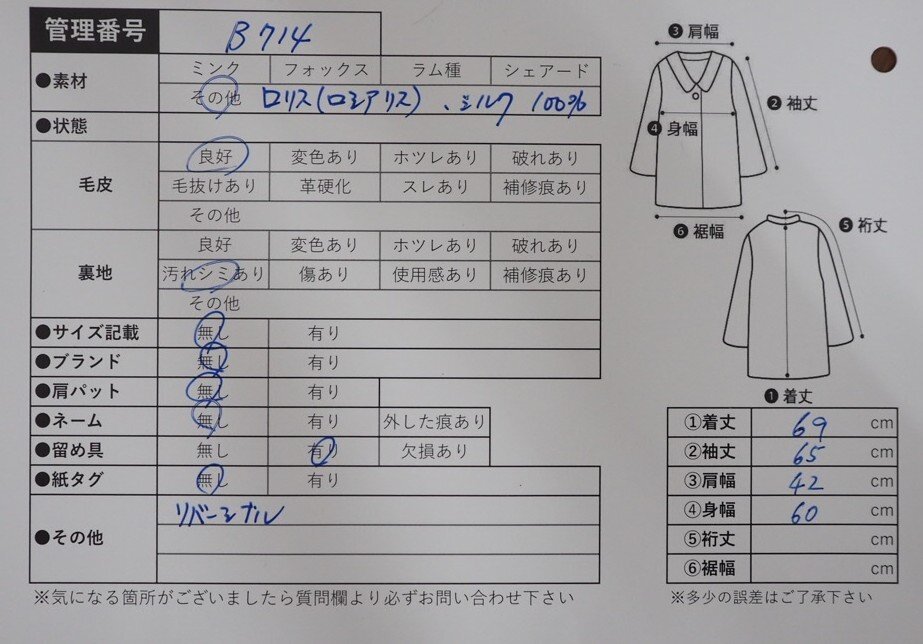 管理番号 B714
●素材 ミンク フォックス ラム種 シェアード
その他 ロリス(ロシアリス)、シルク 100%
●状態
毛皮 良好 変色あり ホツレあり 破れあり
毛抜けあり 革硬化 スレあり 補修痕あり
その他
裏地 良好 変色あり ホツレあり 破れあり
汚れシミあり 傷あり 使用感あり 補修痕あり
その他
●サイズ記載 無し 有り
●ブランド 無し 有り
●肩パット 無し 有り
●ネーム 無し 有り 外した痕あり
●留め具 無し 有り 欠損あり
●紙タグ 無し 有り
●その他 リバーシブル
※気になる箇所がございましたら質問欄より必ずお問い合わせ下さい
❸ 肩幅
❷ 袖丈
❹ 身幅
❻ 裾幅
❺ 裄丈
❶ 着丈
①着丈 69 cm
②袖丈 65 cm
③肩幅 42 cm
④身幅 60 cm
⑤裄丈 cm
⑥裾幅 cm
※多少の誤差はご了承下さい